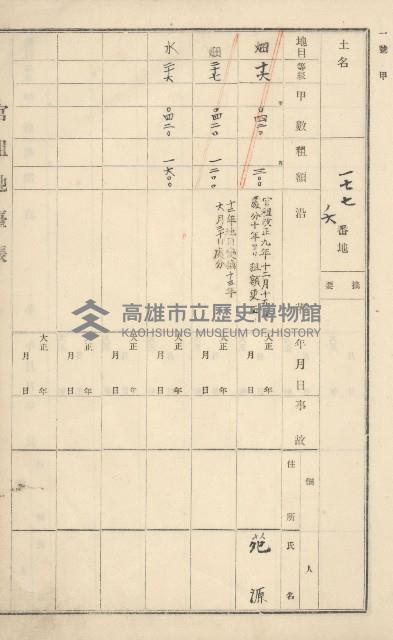 一號甲
土名
一七七ノ六番地
摘要
地目
等級
甲數
租額
沿革
年月日
事故
佃人
住所
氏名
畑
〇四二〇
二〇〇
官租改正九年十二月十五
處分十年ヨリ租額更正
大正年月日
范源
畑
二七
〇四二〇
一二〇〇
十二年地目變換十五年
六月三十日處分
大正年月日
水
二六
〇四二〇
一六〇〇
大正年月日
大正年月日
大正年月日
大正年月日
官租地臺帳
高雄市立歷史博物館
KAOHSIUNG MUSEUM OF HISTORY